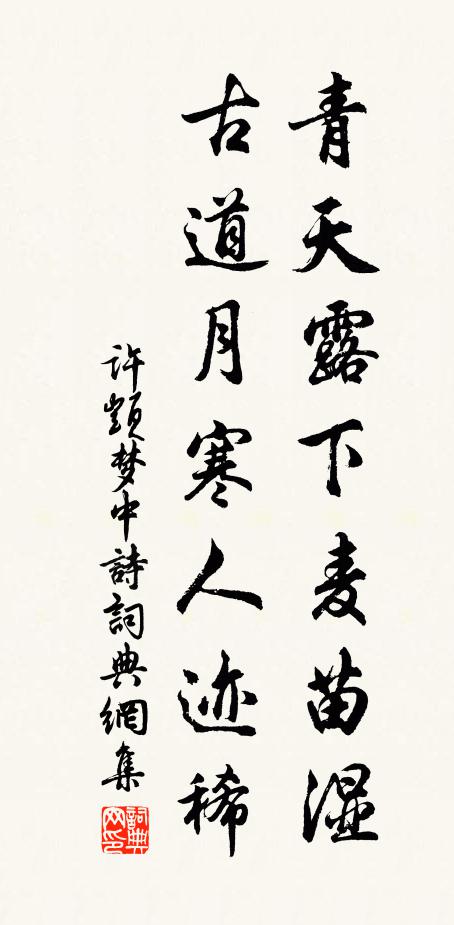 青天露下麦苗湿
古道月寒人迹稀
许顗梦中詩詞典網集
詞典网印